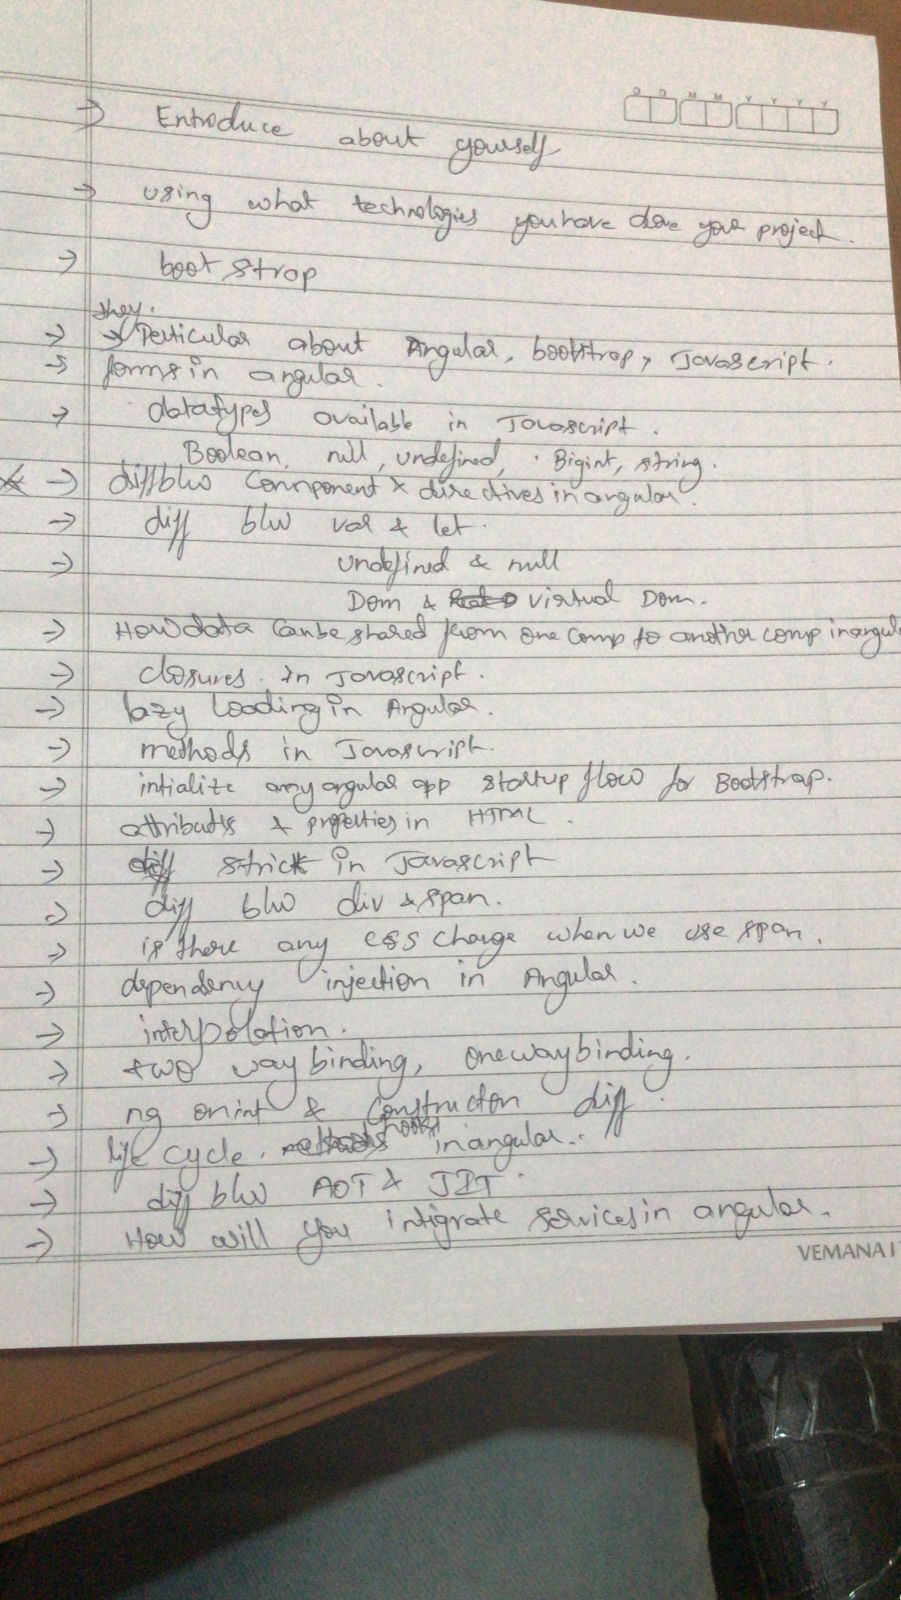 D D M M Y Y Y Y
→ Entroduce about yourself
→ using what technologies you have done your project.
→ bootstrap
they.
→ → Perticular about Angular, bootstrap, Javascript.
→ forms in angular.
→ datatypes available in Javascript.
Boolean, null, undefined, Bigint, string.
→ diff b/w Component & directives in angular.
→ diff b/w var & let.
→ undefined & null
Dom & virtual Dom.
→ How data can be shared from one comp to another comp in angul
→ closures in Javascript.
→ lazy loading in Angular.
→ methods in Javascript.
→ intialize any angular app startup flow for Bootstrap.
→ attributes & properties in HTML.
→ strick in Javascript
→ diff b/w div & span.
→ is there any css change when we use span.
→ dependency injection in Angular.
→ interpolation.
→ two way binding, one way binding.
→ ng onint & Constructon diff.
→ life cycle hooks in angular.
→ diff b/w AOT & JIT.
→ How will you intigrate services in angular.
VEMANA I